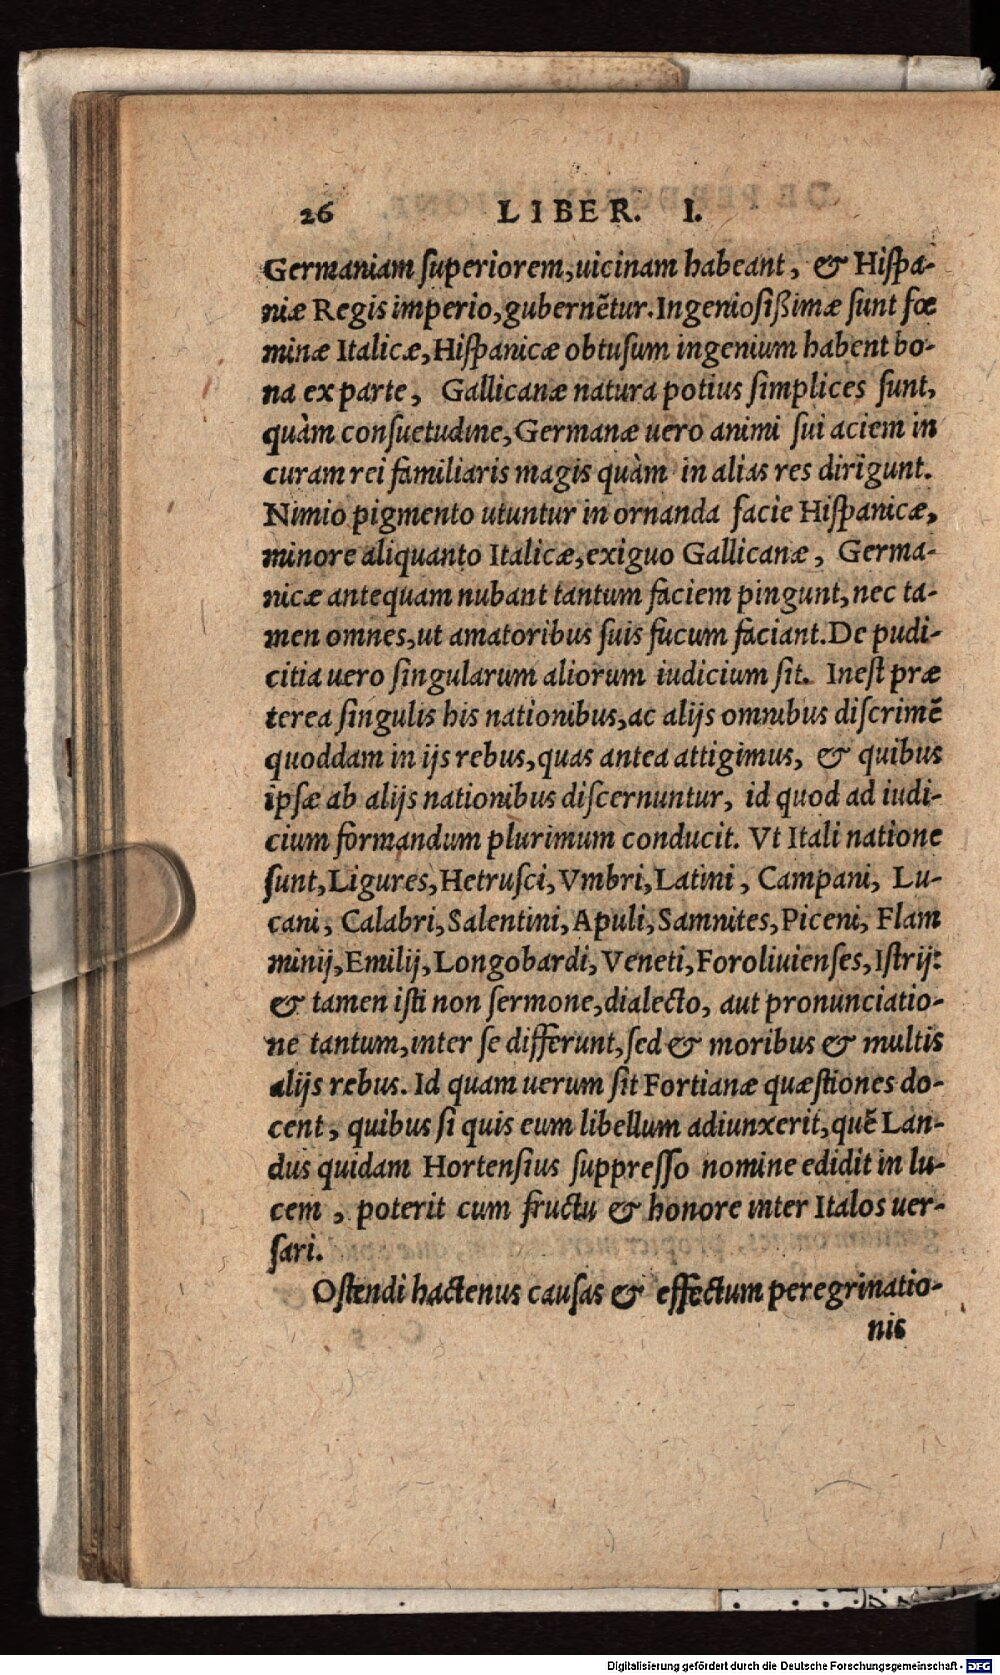 26 LIBER. I.
Germaniam ſuperiorem,uicinam habeant, & Hiſpa-
niæ Regis imperio,gubernẽtur.Ingenioſißimæ ſunt fœ
minæ Italicæ,Hiſpanicæ obtuſum ingenium habent bo-
na ex parte, Gallicanæ natura potius ſimplices ſunt,
quàm conſuetudine,Germanæ uero animi ſui aciem in
curam rei familiaris magis quàm in alias res dirigunt.
Nimio pigmento utuntur in ornanda facie Hiſpanicæ,
minore aliquanto Italicæ,exiguo Gallicanæ, Germa-
nicæ antequam nubant tantum faciem pingunt,nec ta-
men omnes,ut amatoribus ſuis fucum faciant.De pudi-
citia uero ſingularum aliorum iudicium ſit. Ineſt præ
terea ſingulis his nationibus,ac alijs omnibus diſcrimẽ
quoddam in ijs rebus,quas antea attigimus, & quibus
ipſæ ab alijs nationibus diſcernuntur, id quod ad iudi-
cium formandum plurimum conducit. Vt Itali natione
ſunt,Ligures,Hetruſci,Vmbri,Latini, Campani, Lu-
cani, Calabri,Salentini,Apuli,Samnites,Piceni, Flam
minij,Emilij,Longobardi,Veneti,Foroliuienſes,Iſtrij:
& tamen iſti non ſermone,dialecto, aut pronunciatio-
ne tantum,inter ſe differunt,ſed & moribus & multis
alijs rebus. Id quam uerum ſit Fortianæ quæſtiones do-
cent, quibus ſi quis eum libellum adiunxerit,quẽ Lan-
dus quidam Hortenſius ſuppreſſo nomine edidit in lu-
cem, poterit cum fructu & honore inter Italos uer-
ſari.
Oſtendi hactenus cauſas & effectum peregrinatio-
nis
Digitalisierung gefördert durch die Deutsche Forschungsgemeinschaft - DFG